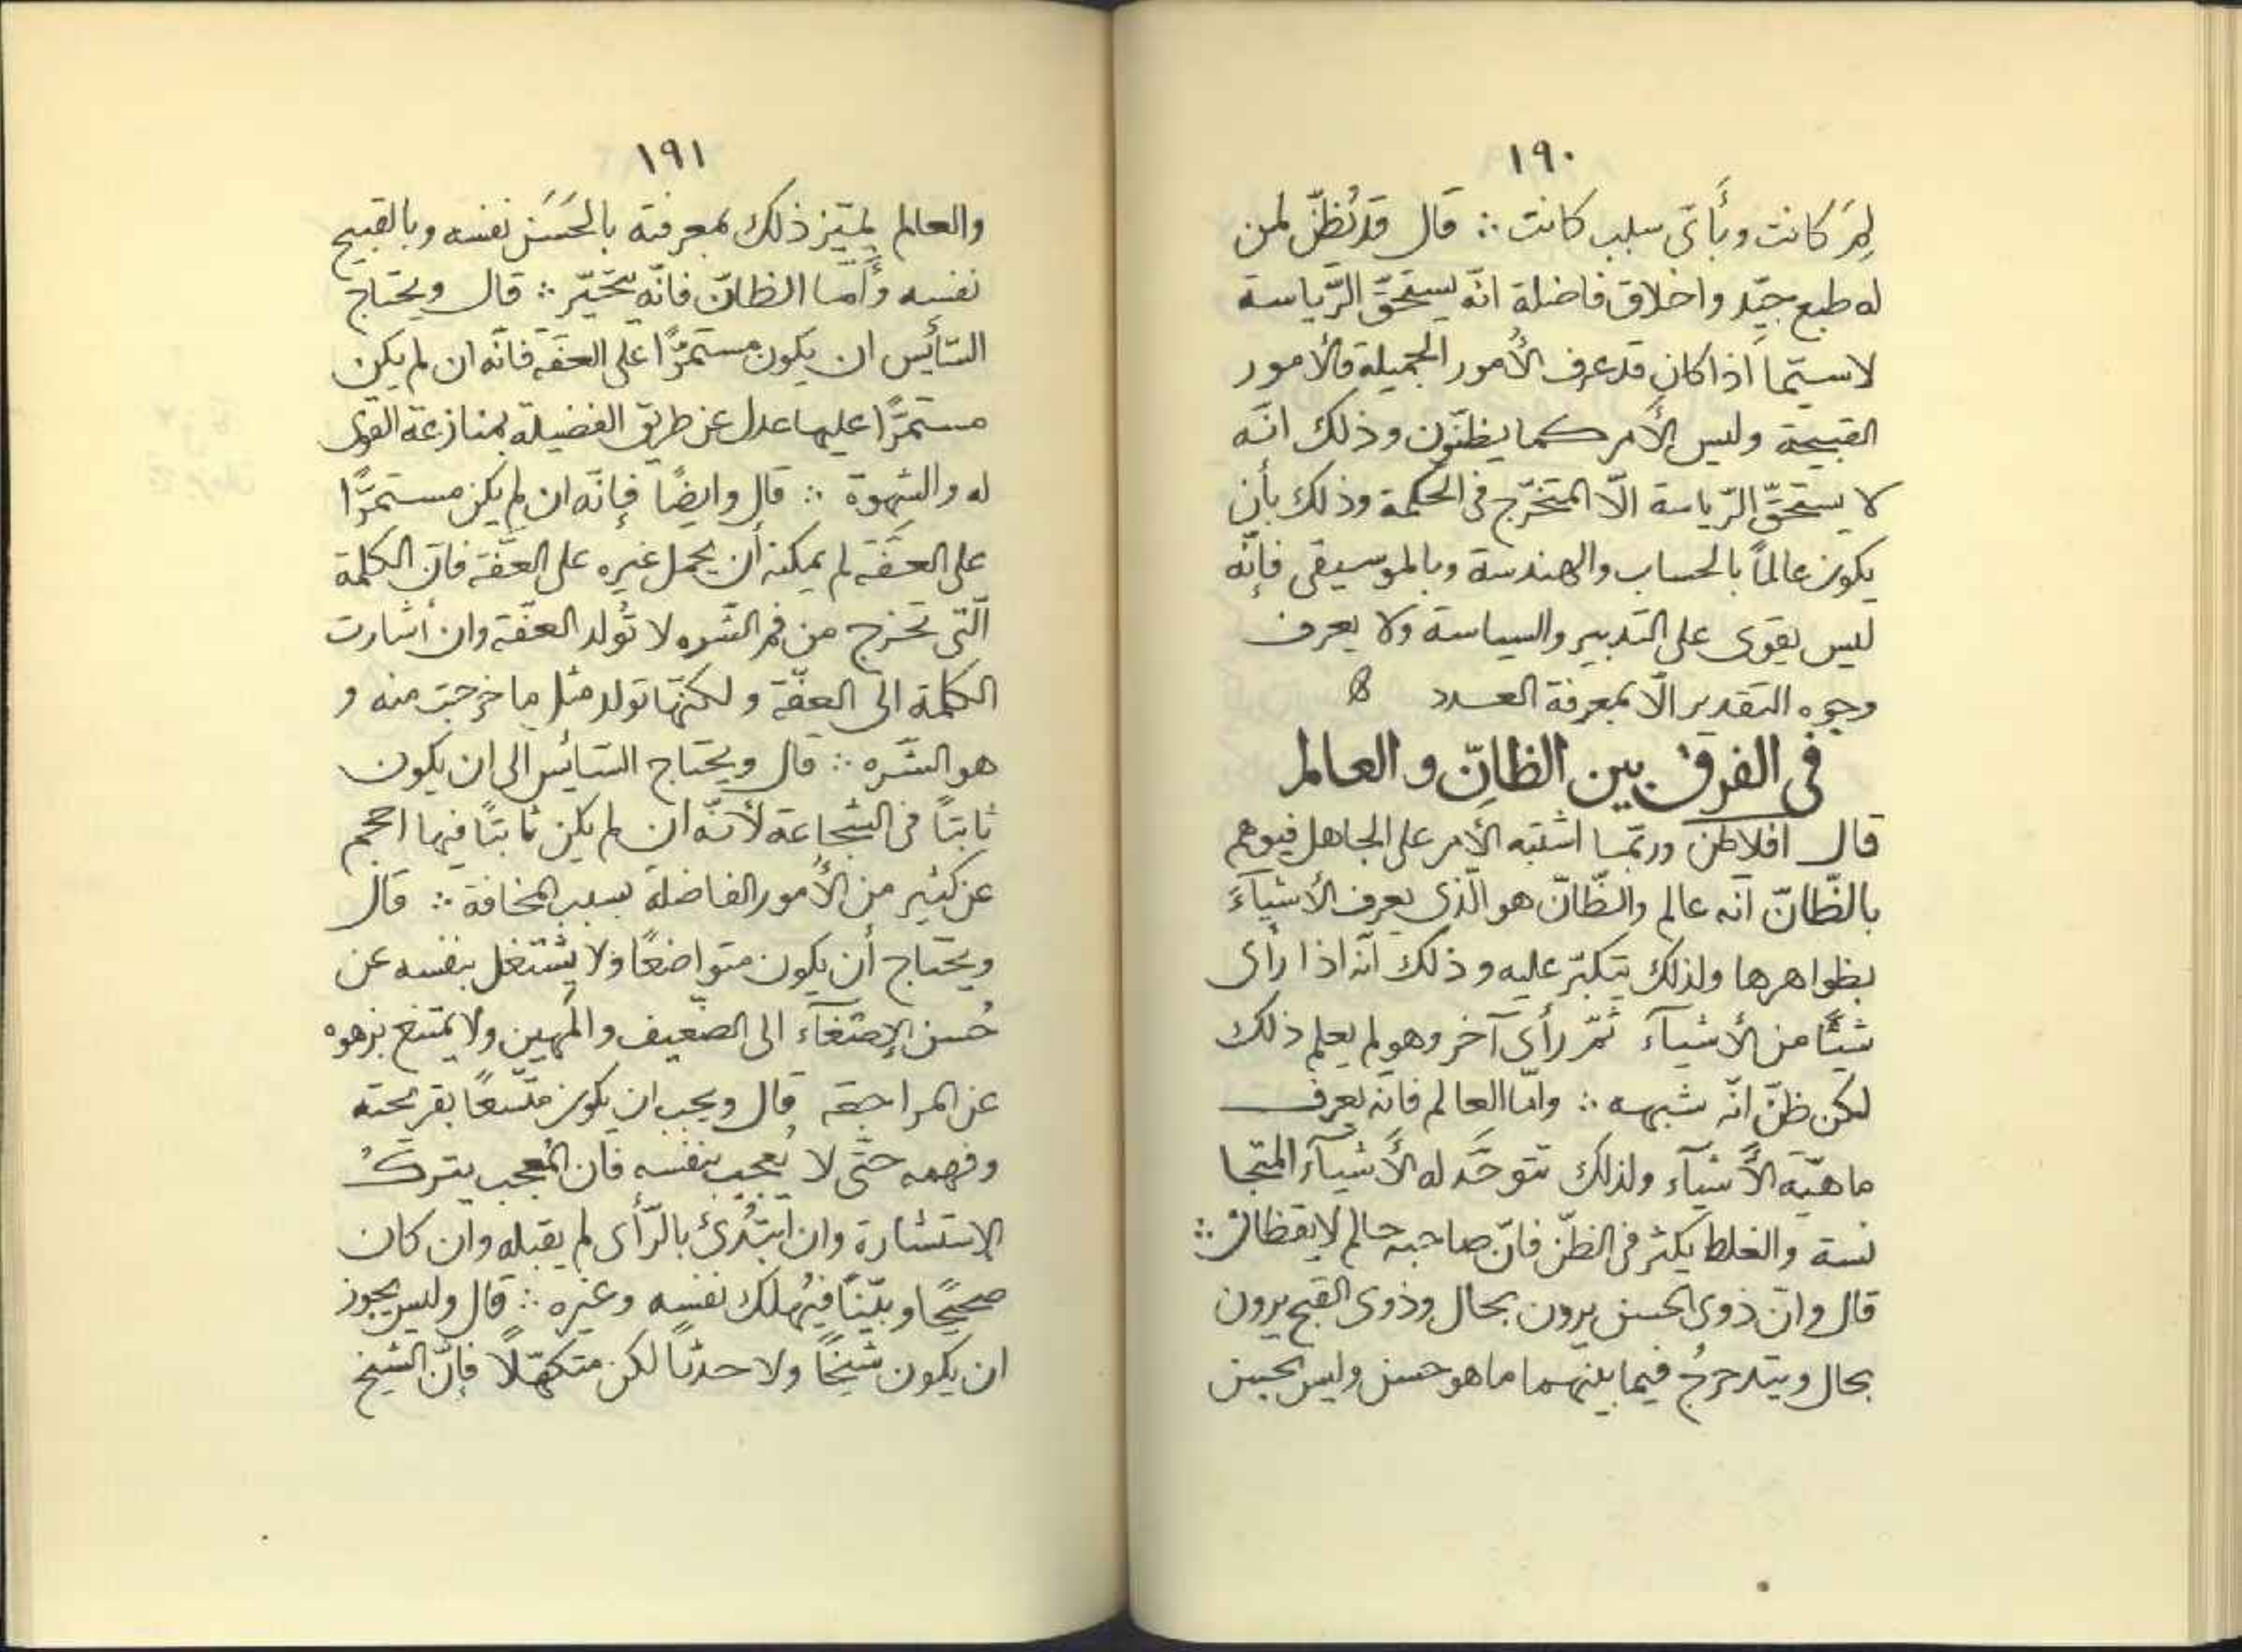 ١٩٠
لِمَ كانت وبأَىّ سبب كانت ∴ قال قد يُظنّ لمن
له طبع جيّد واخلاق فاضلة انّه يستحقّ الرّياسة
لاسيّما اذا كان قد عرف الأُمور الجميلة والأمور
القبيحة وليس الأمر كما يظنّون وذلك انّه
لا يستحقّ الرّياسة الّا المتخرّج فى الحكمة وذلك بأن
يكون عالماً بالحساب والهندسة وبالموسيقى فإنّه
ليس يقوى على التدبير والسياسة ولا يعرف
وجوه التقدير الّا بمعرفة العدد
فى الفرق بين الظانّ والعالم
قال افلاطن وربّما اشتبه الأمر على الجاهل فيوهم
بالظّانّ انّه عالم والظّانّ هو الّذى يعرف الأشيآءَ
بظواهرها ولذلك يتكبّر عليه وذلك انّه اذا رأى
شيئًا من الأشيآء ثمّ رأى آخر وهو لم يعلم ذلك
لكن ظنّ انّه شبهه ∴ وامّا العالم فانّه يعرف
ماهيّة الأَشيآء ولذلك تتوحّد له الأَشيآء المتجا
نسة والغلط يكثر فى الظنّ فانّ صاحبه حالم لا يقظان ∴
قال وانّ ذوى الحسن يرون بحال وذوى القبح يرون
بحال ويتدحرجُ فيما بينهما ما هو حسن وليس بحسن
١٩١
والعالم يميّز ذلك بمعرفته بالحَسَن نفسه وبالقبيح
نفسه وأَمّا الظانّ فانّه يتحيّر ∴ قال ويحتاج
السّائِس ان يكون مستمرًّا على العفّة فانّه ان لم يكن
مستمرًّا عليها عدل عن طريق الفضيلة بمنازعة القوى
له والشهوة ∴ قال وايضًا فإنّه ان لم يكن مستمرًّا
على العفّة لم يمكنه أن يحمل غيره على العفّة فانّ الكلمة
الّتى تخرج من فم الشّره لا تُولد العفّة وان أشارت
الكلمة الى العفّة ولكنّها تولد مثل ما خرجت منه و
هو الشّره ∴ قال ويحتاج السّائِس الى ان يكون
ثابتًا فى الشجاعة لأنّه ان لم يكن ثابتًا فيها احجم
عن كثير من الأُمور الفاضلة بسبب المخافة ∴ قال
ويحتاج أن يكون متواضعًا ولا يشتغل بنفسه عن
حُسن الإصغآء الى الضّعيف والمَهين ولا يمتنع بزهوه
عن المراجعة قال ويجب ان يكون متّسعًا بقريحته
وفهمه حتّى لا يُعجب بنفسه فانّ المُعجب يتركُ
الاستشارة وان ابتُدئ بالرّأى لم يقبله وان كان
صحيحًا وبيّنًا فيُهلك نفسه وغيره ∴ قال وليس يجوز
ان يكون شيخًا ولا حدثًا لكن متكهّلًا فإنّ الشيخ